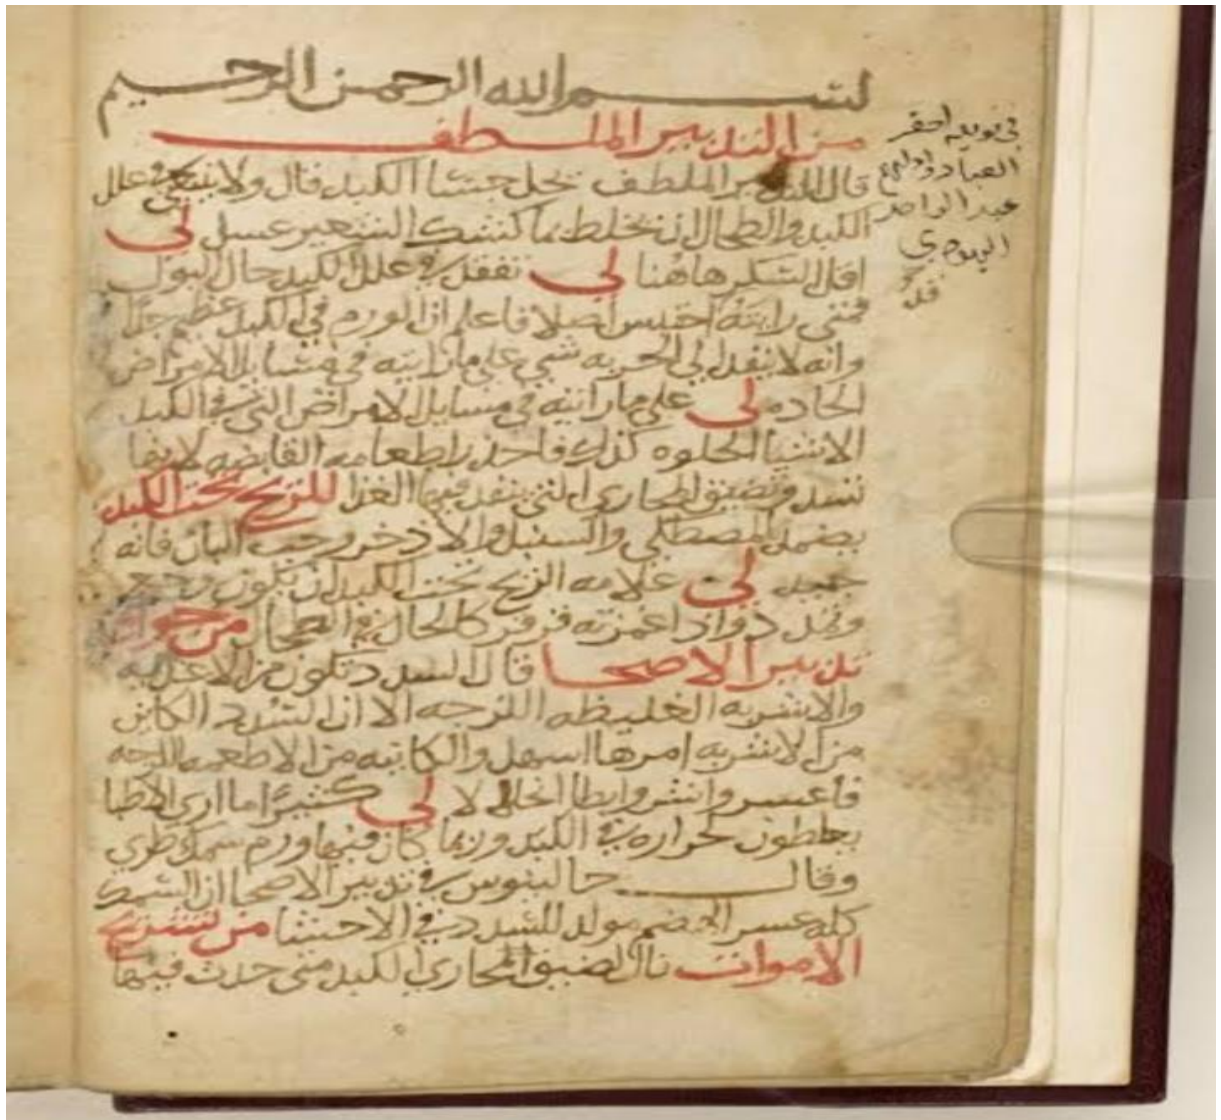 بسم الله الرحمن الرحيم
من التدبير الملطف
قال التدبير الملطف يحل جشا الكبد قال ولا ينبغي في علل
الكبد والطحال ان يخلط بماء كشك الشعير عسل لي
اقل الشكر هاهنا لي تفقد في علل الكبد حال البول
فمتى رايته احتبس اصلا فاعلم ان الورم في الكبد عظيم جدا
وانه لا ينفذ الى الحربه شي على ما رايته في مسايل الامراض
الحاده لي على ما راتيه في مسايل الامراض التي في الكبد
الاشيا الحلوه كذلك فاحذر اطعامه القابضه لانها
تسد وتضيق المجاري التي ينفذ فيها الغذا للريح تحت الكبد
يضمد بالمصطكى والسنبل والاذخر وحب البان فانه
جيد لي علامه الريح تحت الكبد ان يكون وجع
وتمدد واذا غمزته قرقر كالحال في الطحال من جوامع
تدبير الاصحا قال السدد تكون من الاغذيه
والاشربه الغليظه اللزجه الا ان السدد الكاين
من الاشربه امرها اسهل والكاينه من الاطعمه اللزجه
فاعسر واشر وابطا انحلالا لي كثيرا ما ارى الاطبا
يغلطون لحراره في الكبد وربما كان فيها ورم سمك طري
وقال جالينوس في تدبير الاصحا ان السمك
كله عسر الهضم مولد للسدد في الاحشا من تشريح
الاموات قال لضيق المجاري الكبد متى حدث فيها
في نوبة احقر
العباد
عبد الواحد